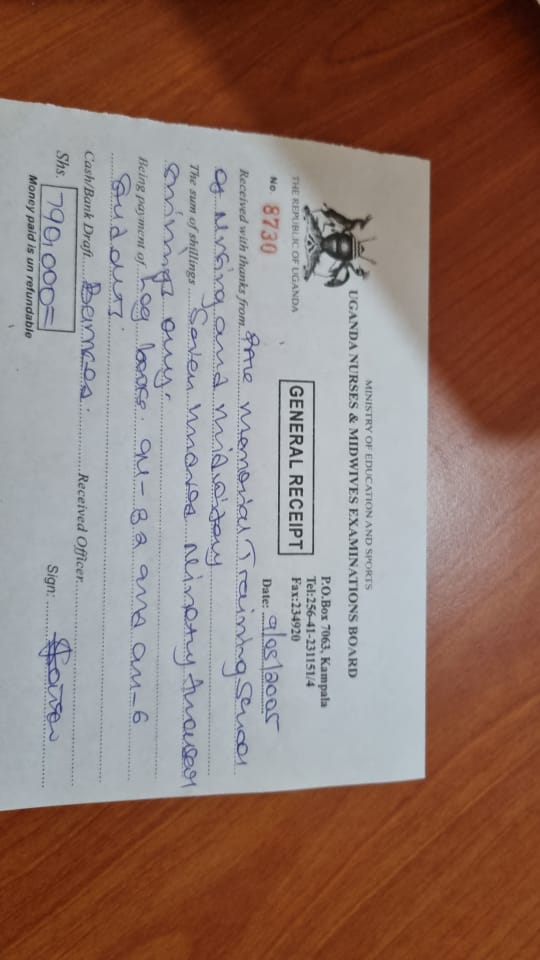 MINISTRY OF EDUCATION AND SPORTS
UGANDA NURSES & MIDWIVES EXAMINATIONS BOARD
THE REPUBLIC OF UGANDA
P.O.Box 7063, Kampala
Tel:256-41-231151/4
Fax:234920
GENERAL RECEIPT
No 8730
Date: 9/05/2025
Received with thanks from Memorial Training School
of Nursing and midwifery
The sum of shillings Seven Hundred Ninety thousand
shillings only.
Being payment of Log books. and
Cash/Bank Draft Received Officer
Shs. 790,000=
Sign:
Money paid is un refundable